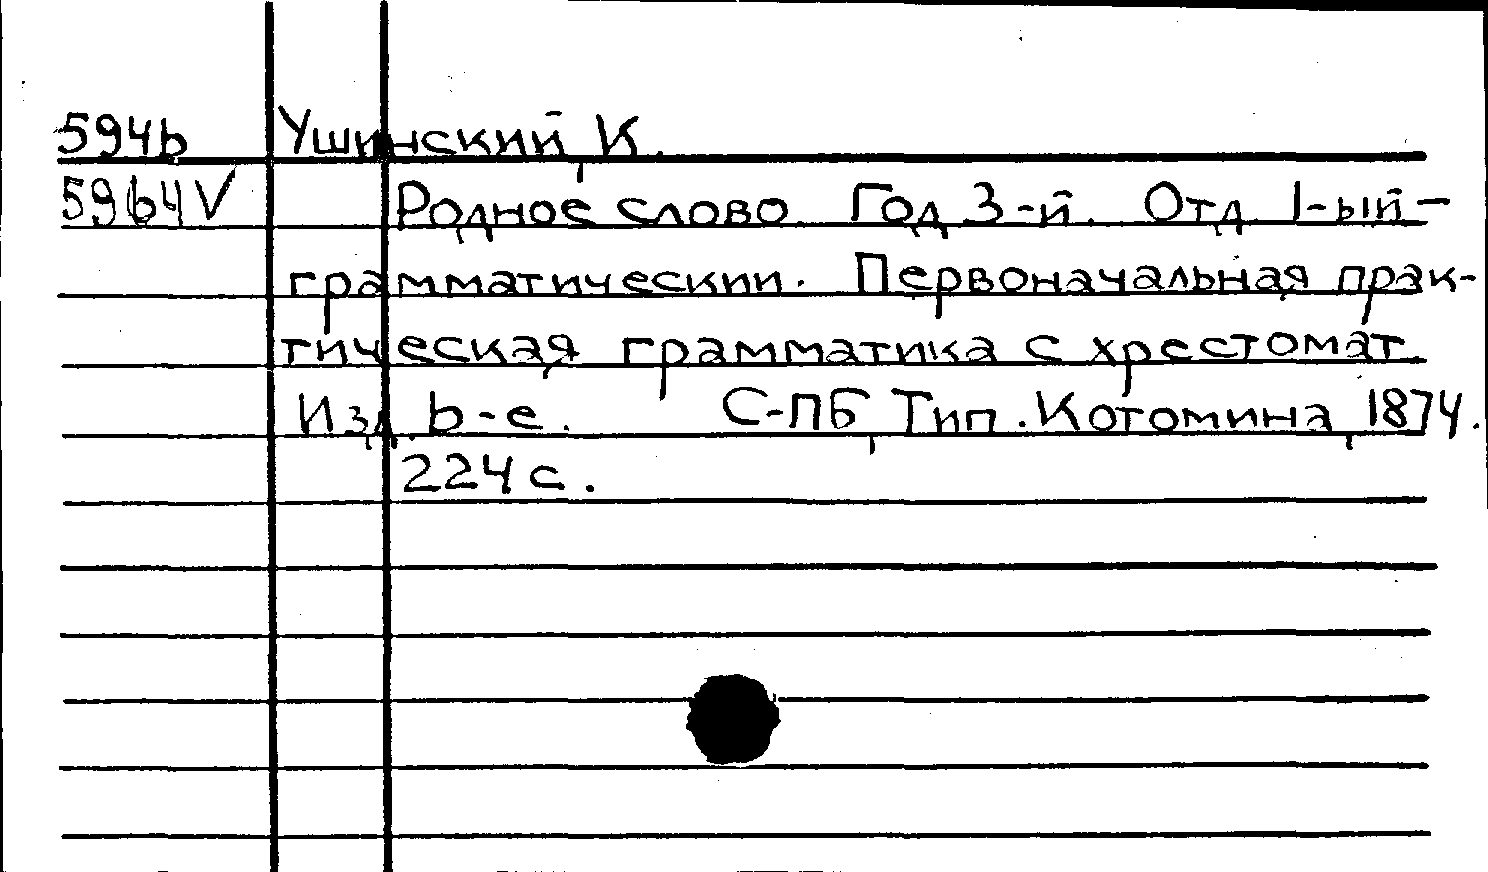 5946 Ушинский, К.
5964 V Родное слово. Год 3-й. Отд. 1-ый-
грамматический. Первоначальная прак-
тическая грамматика с хрестомат.
Изд. 6-е. С-ПБ, Тип. Котомина, 1874.
224 с.